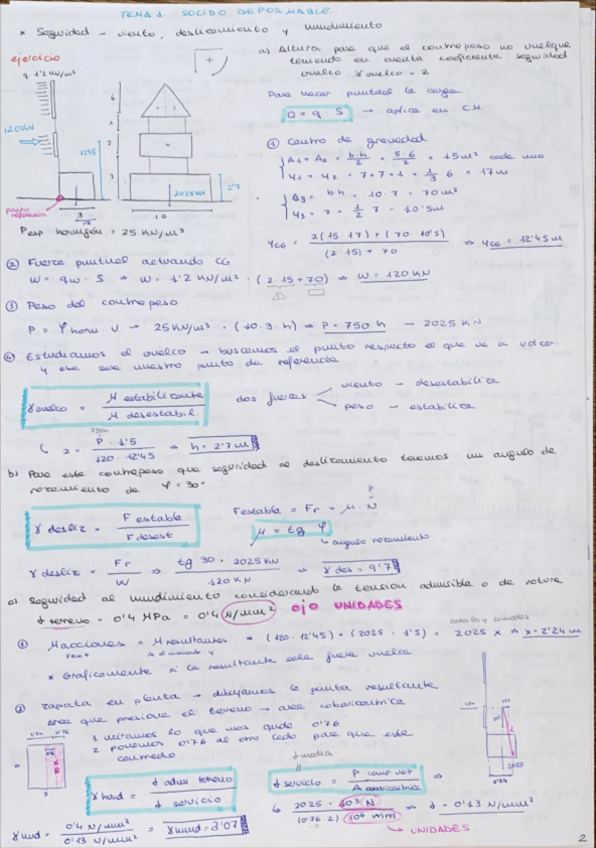 TEMA 1 SÓLIDO DEFORMABLE
* Seguridad - viento, deslizamiento y hundimiento
ejercicio
q 1'2 KN/m²
120KN
1245
punto referencia
3
1'5
10
2025KN
2'7
Pesp hormigón = 25 KN/m³
a) Altura para que el contrapeso no vuelque
teniendo en cuenta coeficiente seguridad
vuelco γ vuelco = 2
Para hacer puntual la carga
Q = q · S → aplica en CM
① Centro de gravedad
A1 = A2 = b·h/2 = 5·6/2 = 15m² cada uno
y1 = y2 = 7+7+1+1/3 6 = 17m
A3 = b·h = 10·7 = 70m²
y3 = 7+1/2 7 = 10'5m
yCG = 2(15·17)+(70·10'5) / (2·15)+70 ⇒ yCG = 12'45m
② Fuerza puntual actuando CG
W = qw · S → W = 1'2 KN/m² · (2·15+70) ⇒ W = 120 KN
③ Peso del contrapeso
P = ρhorm · V → 25KN/m³ · (10·3·h) ⇒ P = 750 h → 2025 KN
④ Estudiamos el vuelco → buscamos el punto respecto el que va a volcar
y ese será nuestro punto de referencia
γ vuelco = M estabilizante / M desestabil
dos fuerzas
viento → desestabiliza
peso → estabiliza
2 = P · 1'5 / 120 · 12'45 ⇒ h = 2'7m
750h
b) Para este contrapeso que seguridad al deslizamiento tenemos un angulo de
rozamiento de φ = 30°
γ desliz = F estable / F desest
Festable = Fr = μ · N
P
μ = tg φ
angulo rozamiento
γ desliz = Fr / W ⇒ tg 30 · 2025KN / 120 KN ⇒ γ des = 9'7
c) Seguridad al hundimiento considerando la tension admisible o de rotura
σ terreno = 0'4 MPa = 0'4 N/mm² OJO UNIDADES
① M acciones = M resultantes ⇒ (120·12'45)+(2025·1'5) = 2025 x ⇒ x = 2'24m
* Graficamente si la resultante sale fuera vuelca
② Zapata en planta → dibujamos la planta resultante
Area que presiona el terreno → area cobaricentrica
1 miramos lo que nos queda 0'76
2 ponemos 0'76 al otro lado para que este
centrado
σ media
γ hund = σ adm terreno / σ servicio
σ servicio = P comp ver / A cobaricentrica ⇒
2025 · 10³ N / (0'76·2) 10⁶ mm ⇒ σ = 0'13 N/mm²
UNIDADES
γ hud = 0'4 N/mm² / 0'13 N/mm² = γ hund = 3'07
2